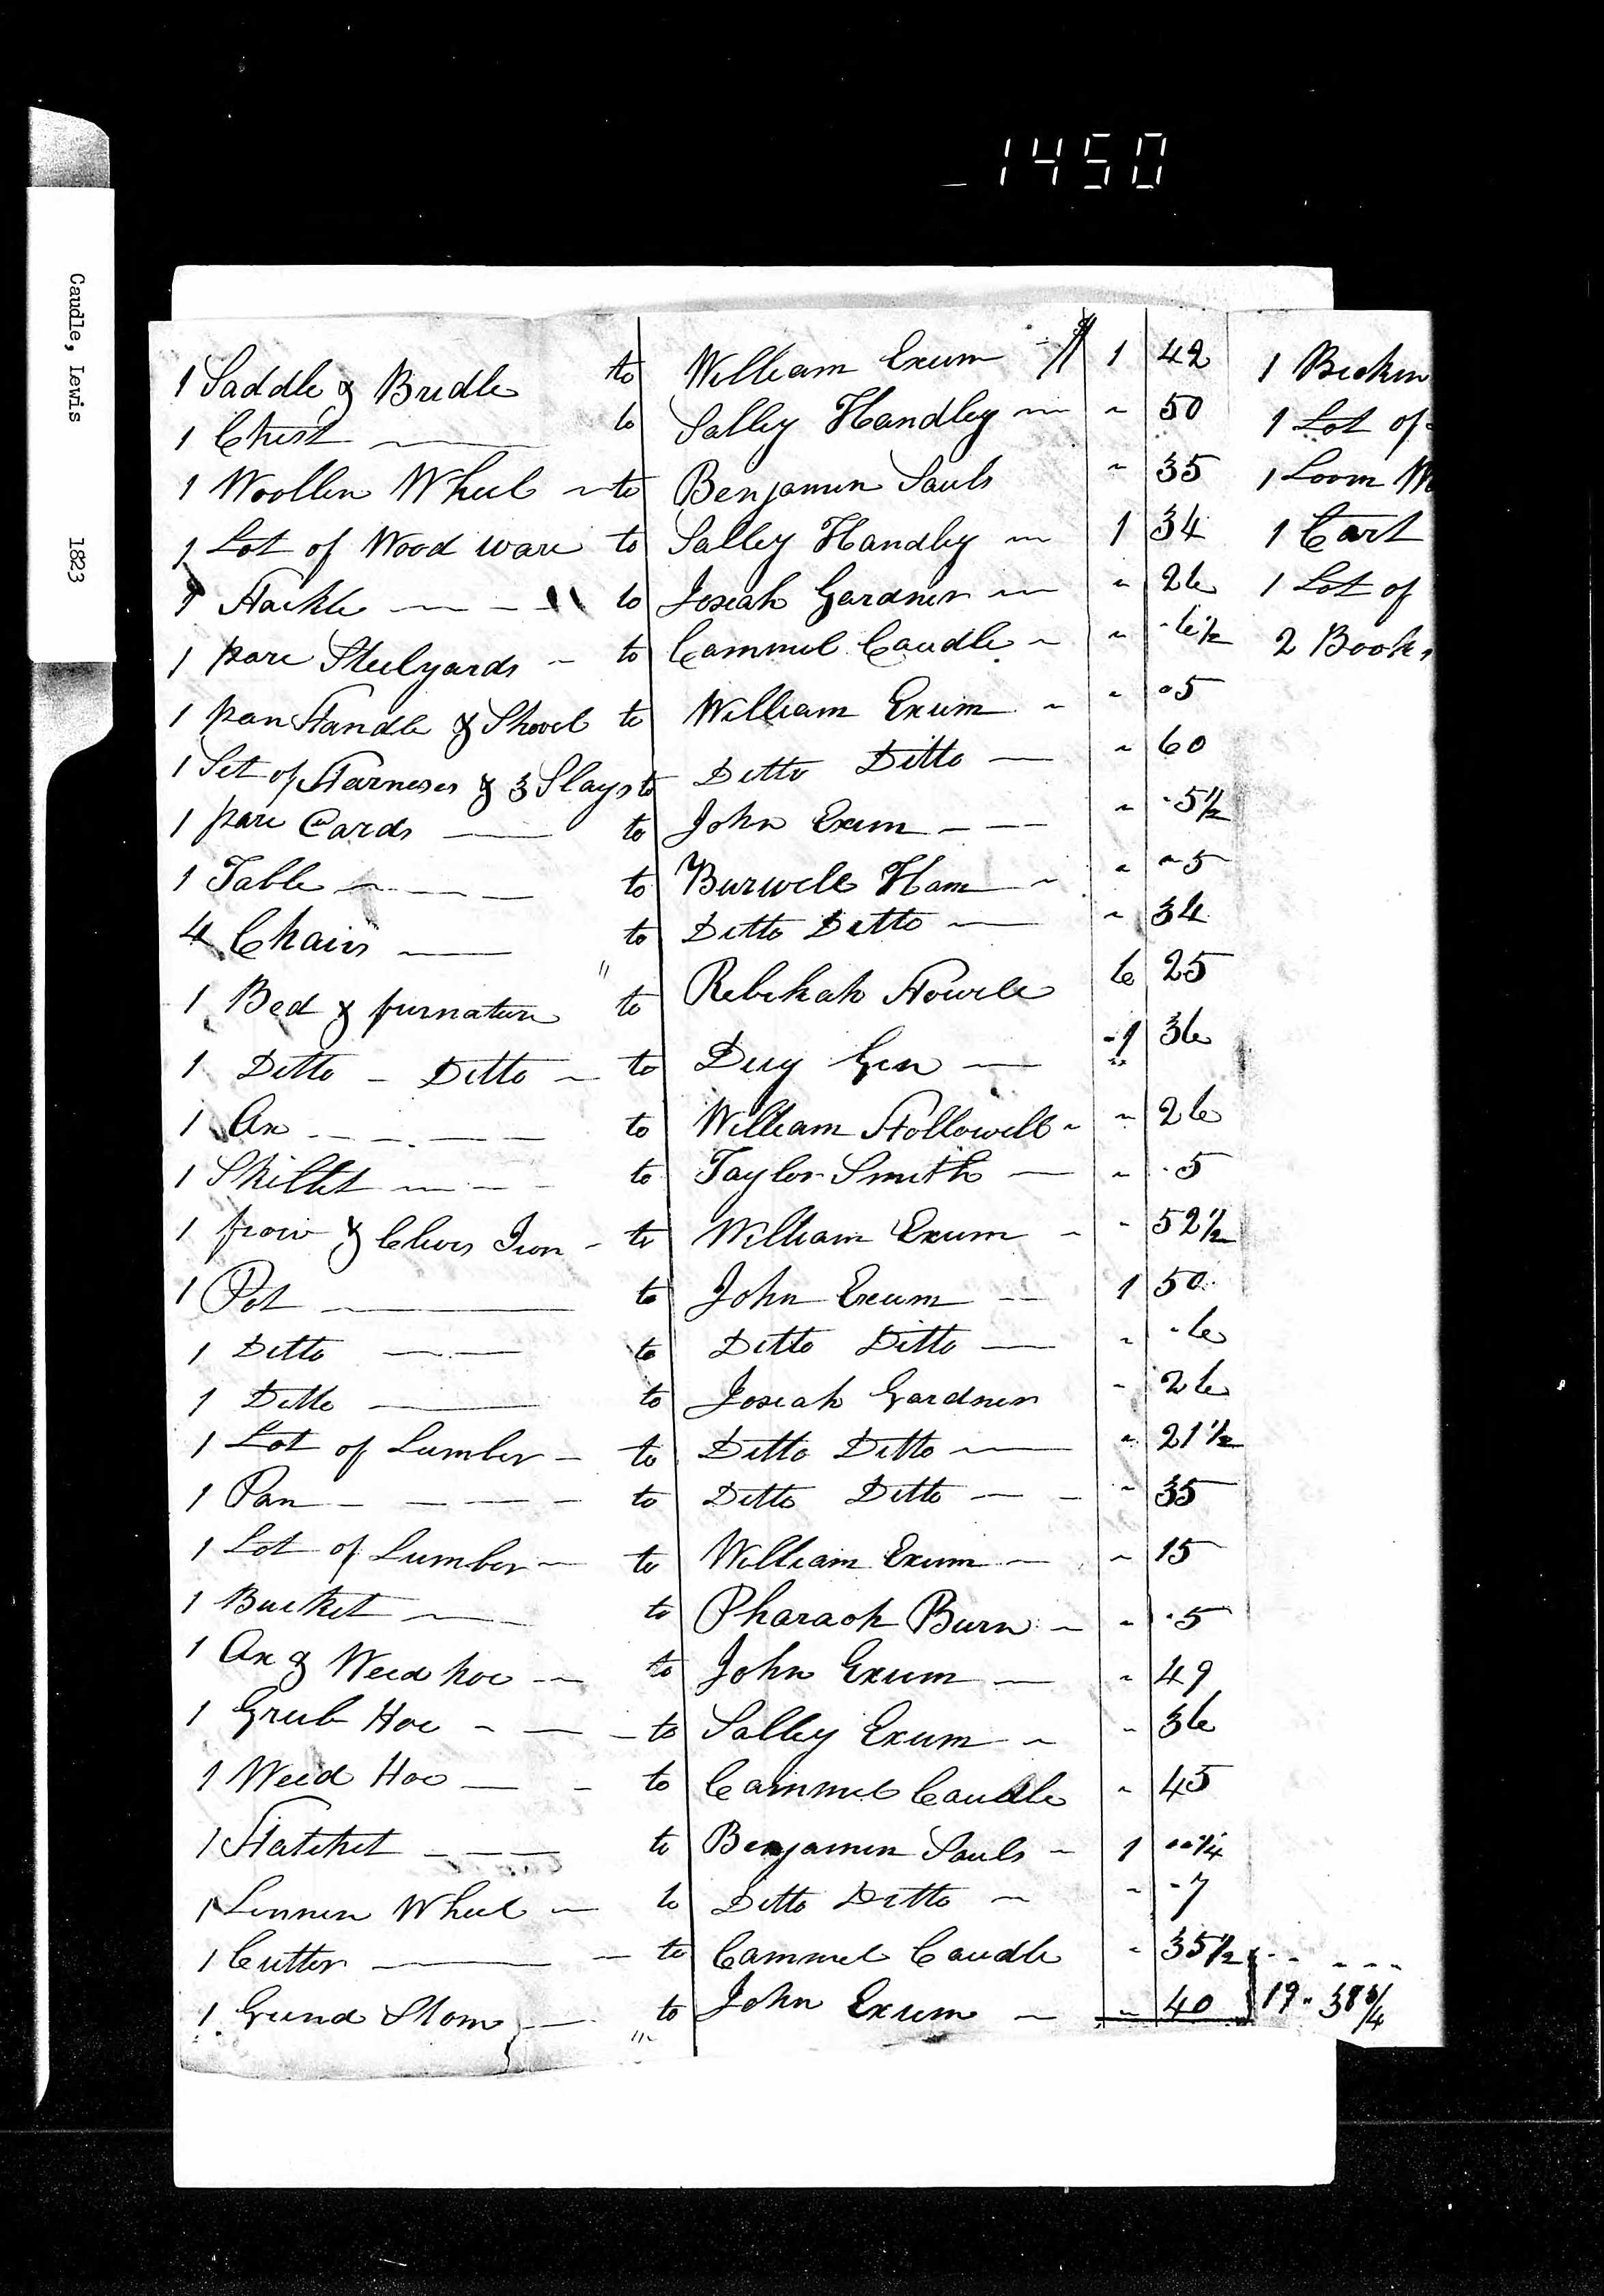 1450
Caudle, Lewis 1823
1 Saddle & Bridle to William Exum $ 1 42
1 Chest to Salley Handley " 50
1 Woollen Wheel to Benjamin Sauls " 35
1 Lot of Wood ware to Salley Handley 1 34
1 Hackle to Josiah Gardner " 26
1 pare Steelyards to Cammel Caudle " 6½
1 pan Handle & Shovel to William Exum " 5
1 Set of Harneses & 3 Slays to Ditto Ditto " 60
1 pare Cards to John Exum " 5½
1 Table to Burwell Ham " 5
4 Chairs to Ditto Ditto " 34
1 Bed & furnature to Rebekah Howell 6 25
1 Ditto Ditto to 1 36
1 Ax to William Hollowell " 26
1 Skillet to Taylor Smith " 5
1 frow & Clevis Iron to William Exum " 52½
1 Pot to John Exum 1 50
1 Ditto to Ditto Ditto " 6
1 Ditto to Josiah Gardner " 26
1 Lot of Lumber to Ditto Ditto " 21½
1 Pan to Ditto Ditto " 35
1 Lot of Lumber to William Exum " 15
1 Bucket to Pharaoh Burn " 5
1 Ax & Weed hoe to John Exum " 49
1 Grub Hoe to Salley Exum " 36
1 Weed Hoe to Cammel Caudle " 45
1 Hatchet to Benjamin Sauls 1 00¼
1 Linnen Wheel to Ditto Ditto " 7
1 Cutter to Cammel Caudle " 35½
1 Grind Stone to John Exum " 40 19 38
1 Lot of
1 Loom
1 Cart
1 Lot of
2 Books